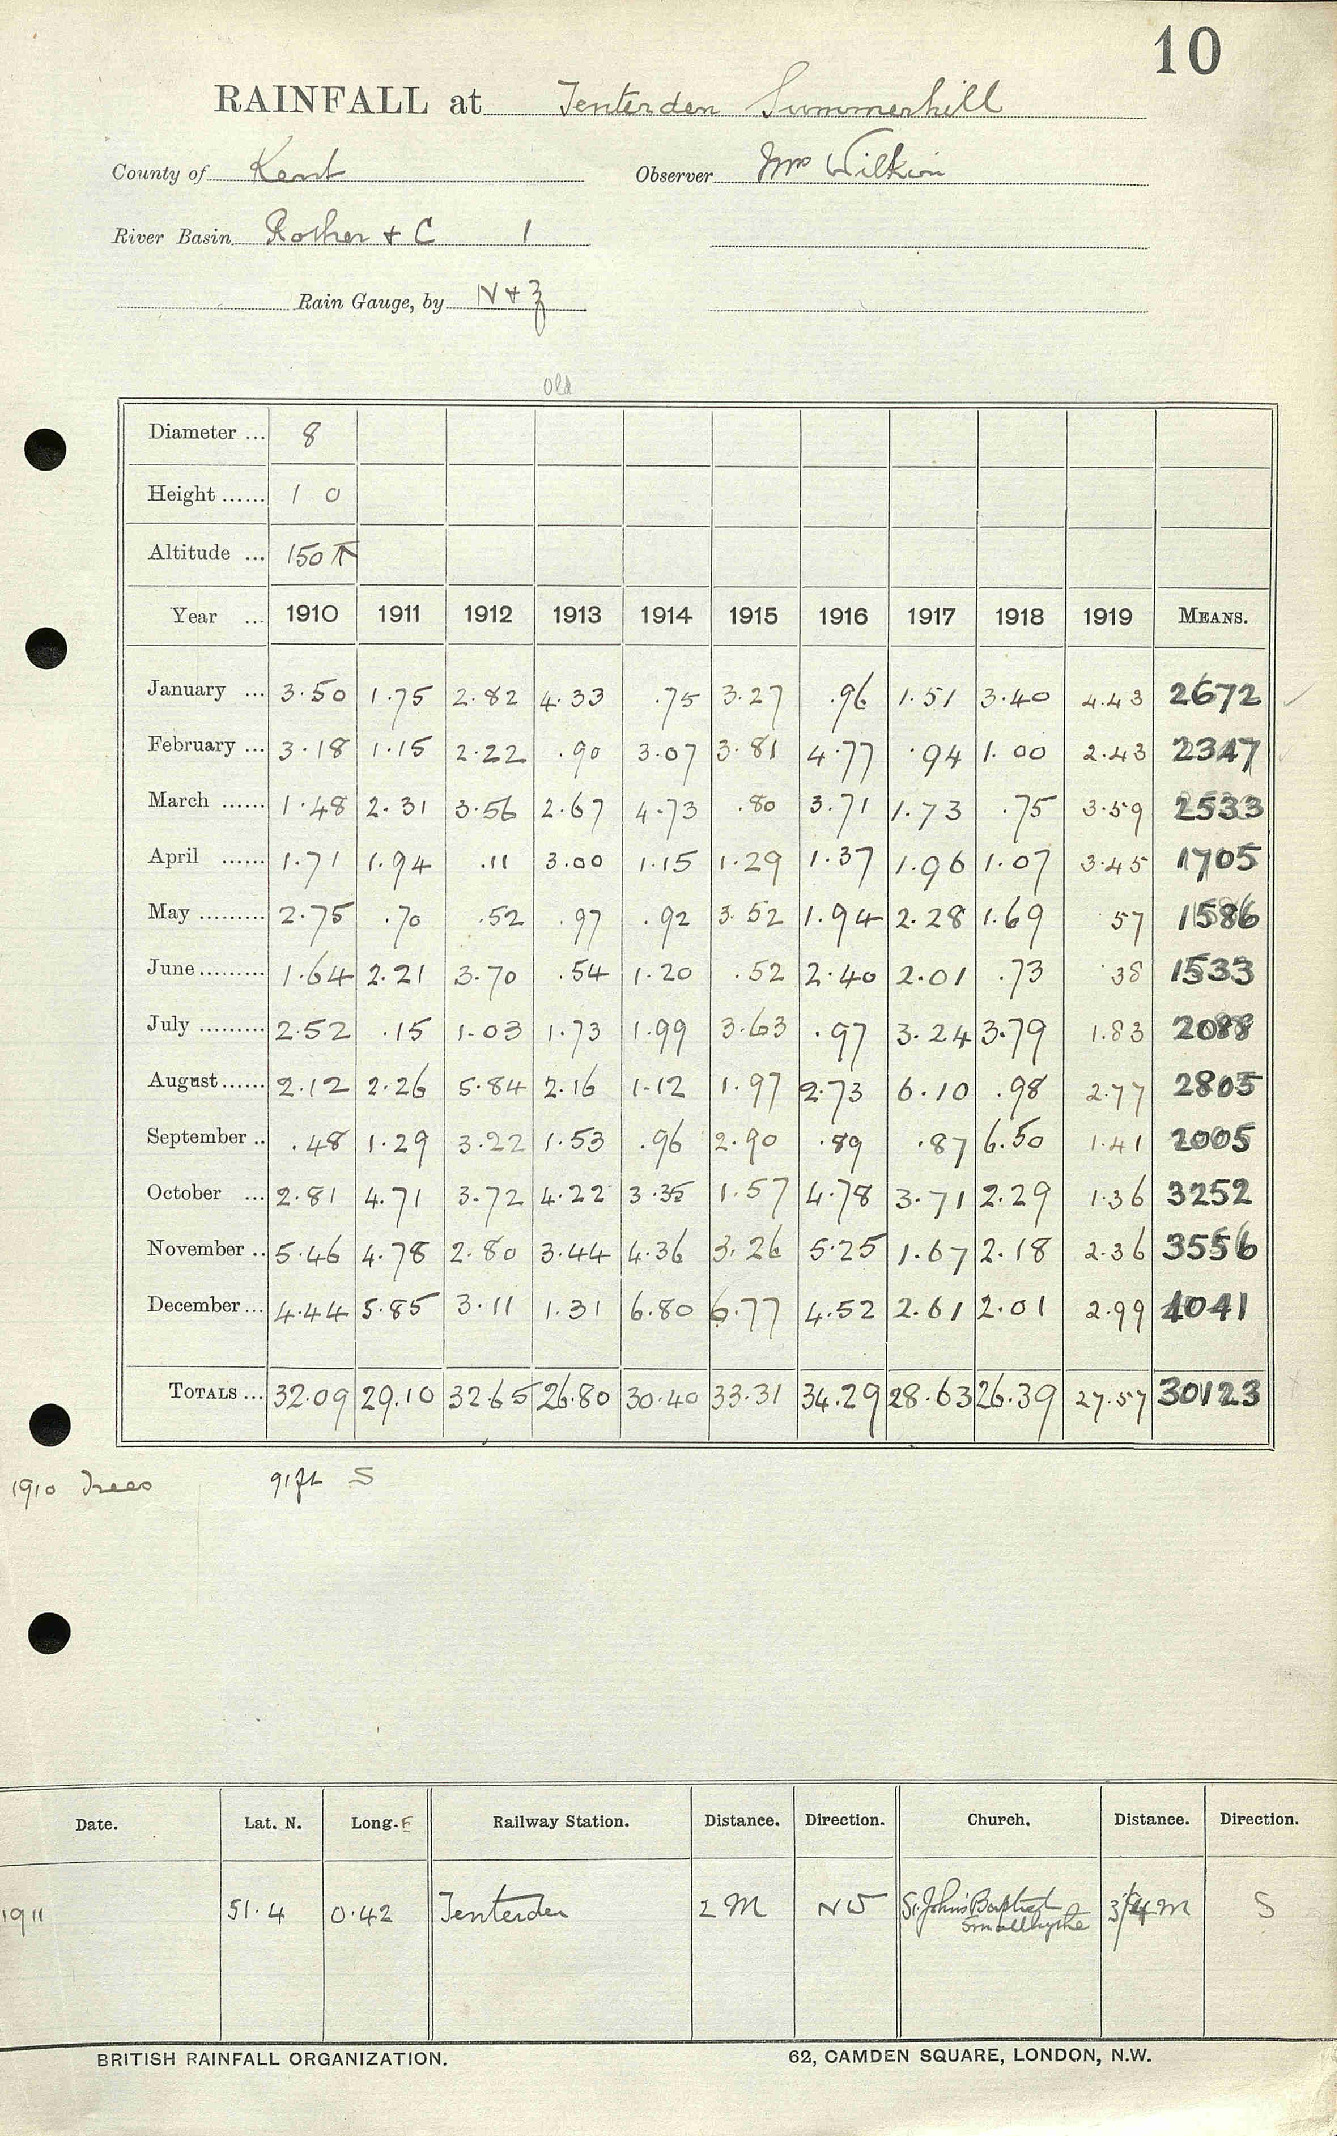 10
RAINFALL at Tenterden Summerhill
County of Kent Observer Mrs Wilkin
River Basin Rother + C 1
Rain Gauge, by N + Z
Old
Diameter ... 8
Height ...... 1 0
Altitude ... 150
Year ... 1910 1911 1912 1913 1914 1915 1916 1917 1918 1919 MEANS.
January ... 3.50 1.75 2.82 4.33 .75 3.27 .96 1.51 3.40 4.43 2672
February ... 3.18 1.15 2.22 .90 3.07 3.81 4.77 .94 1.00 2.43 2347
March ...... 1.48 2.31 3.56 2.67 4.73 .80 3.71 1.73 .75 3.59 2533
April ...... 1.71 1.94 .11 3.00 1.15 1.29 1.37 1.96 1.07 3.45 1705
May ......... 2.75 .70 .52 .97 .92 3.52 1.94 2.28 1.69 57 1586
June ......... 1.64 2.21 3.70 .54 1.20 .52 2.40 2.01 .73 .38 1533
July ......... 2.52 .15 1.03 1.73 1.99 3.63 .97 3.24 3.79 1.83 2088
August ...... 2.12 2.26 5.84 2.16 1.12 1.97 2.73 6.10 .98 2.77 2805
September .. .48 1.29 3.22 1.53 .96 2.90 .89 .87 6.50 1.41 2005
October ... 2.81 4.71 3.72 4.22 3.35 1.57 4.78 3.71 2.29 1.36 3252
November .. 5.46 4.78 2.80 3.44 4.36 3.26 5.25 1.67 2.18 2.36 3556
December ... 4.44 5.85 3.11 1.31 6.80 6.77 4.52 2.61 2.01 2.99 4041
TOTALS ... 32.09 29.10 32.65 26.80 30.40 33.31 34.29 28.63 26.39 27.57 30123
1910 Trees 91ft S
Date. Lat. N. Long. E Railway Station. Distance. Direction. Church. Distance. Direction.
1911 51.4 0.42 Tenterden 2 M NW St. John's Baptist 3/4 M S
Smallhythe
BRITISH RAINFALL ORGANIZATION. 62, CAMDEN SQUARE, LONDON, N.W.